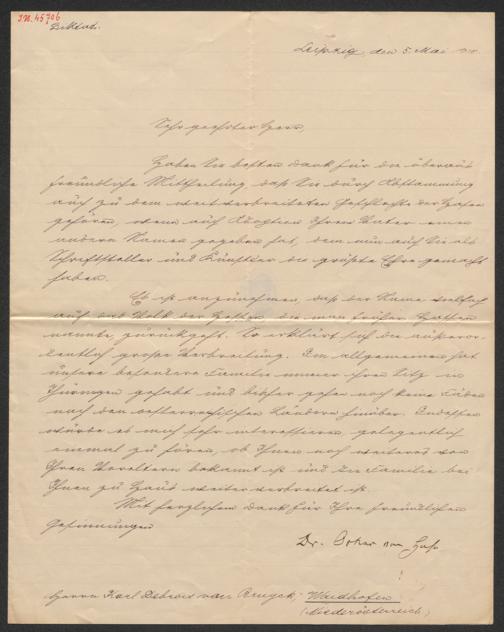 I.N. 45706
Diktat.
Leipzig, den 5. Mai
Sehr geehrter Herr,
Haben Sie besten Dank für die überaus
freundliche Mitteilung, daß Sie durch Abstammung
auch zu dem weitverbreiteten Geschlechte der Hasen
gehören, wenn auch Ihren Vater einen
anderen Namen gegeben hat, dem nun auch Sie als
Schriftsteller und Künstler die größte Ehre gemacht
haben.
Es ist anzunehmen, daß der Name vielfach
auf das Volk der Hessen, die man früher Hassen
nannte, zurückgeht. So erklärt sich die außeror-
dentlich große Verbreitung. Im allgemeinen hat
unsere besondere Familie immer ihren Sitz in
Thüringen gehabt und bisher gehen noch keine Fäden
nach den oesterreichischen Ländern hinüber. Indessen
würde es mich sehr interessieren, gelegentlich
einmal zu hören, ob Ihnen noch weiteres von
Ihren Voreltern bekannt ist und die Familie bei
Ihnen zu Haus weiter verbreitet ist.
Mit herzlichem Dank für Ihre freundlichen
Gesinnungen
Dr. Oskar von Hase
Herrn Karl van Bruyck, Waidhofen
(Niederösterreich)